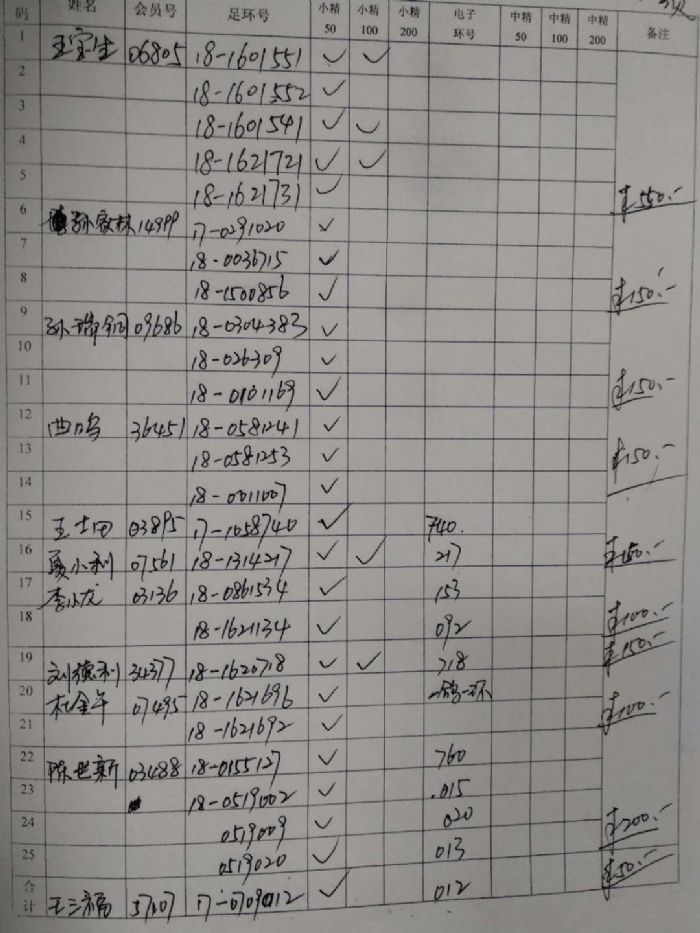 码 姓名 会员号 足环号 小精50 小精100 小精200 电子环号 中精50 中精100 中精200 备注
1 王宝生 06805 18-1601551 ✓ ✓
2 18-1601552 ✓
3 18-1601541 ✓ ✓
4 18-1621721 ✓ ✓
5 18-1621731 ✓ ¥550.-
6 孙家林 14999 17-0291020 ✓
7 18-0036715 ✓
8 18-1500856 ✓ ¥150.-
9 09686 18-0304383 ✓
10 18-026309 ✓
11 18-0101169 ✓ ¥150.-
12 曲鸣 36451 18-0581241 ✓
13 18-0581253 ✓ ¥150.-
14 18-0011007 ✓
15 王士田 03895 17-1058740 ✓ 740.
16 夏小利 07561 18-1314217 ✓ ✓ 217 ¥150.-
17 李小龙 03136 18-0861534 ✓ 153
18 18-1621134 ✓ 092 ¥100.-
19 刘德利 34377 18-1620718 ✓ ✓ 718 ¥150.-
20 杜金年 07495 18-1621696 ✓ 一鸽一环 ¥100.-
21 18-1621692 ✓
22 陈世新 03488 18-0155127 ✓ 760
23 18-0519002 ✓ .015
24 0519009 ✓ 020 ¥200.-
25 0519020 ✓ 013
合计 王三福 17-0709012 ✓ 012 ¥50.-